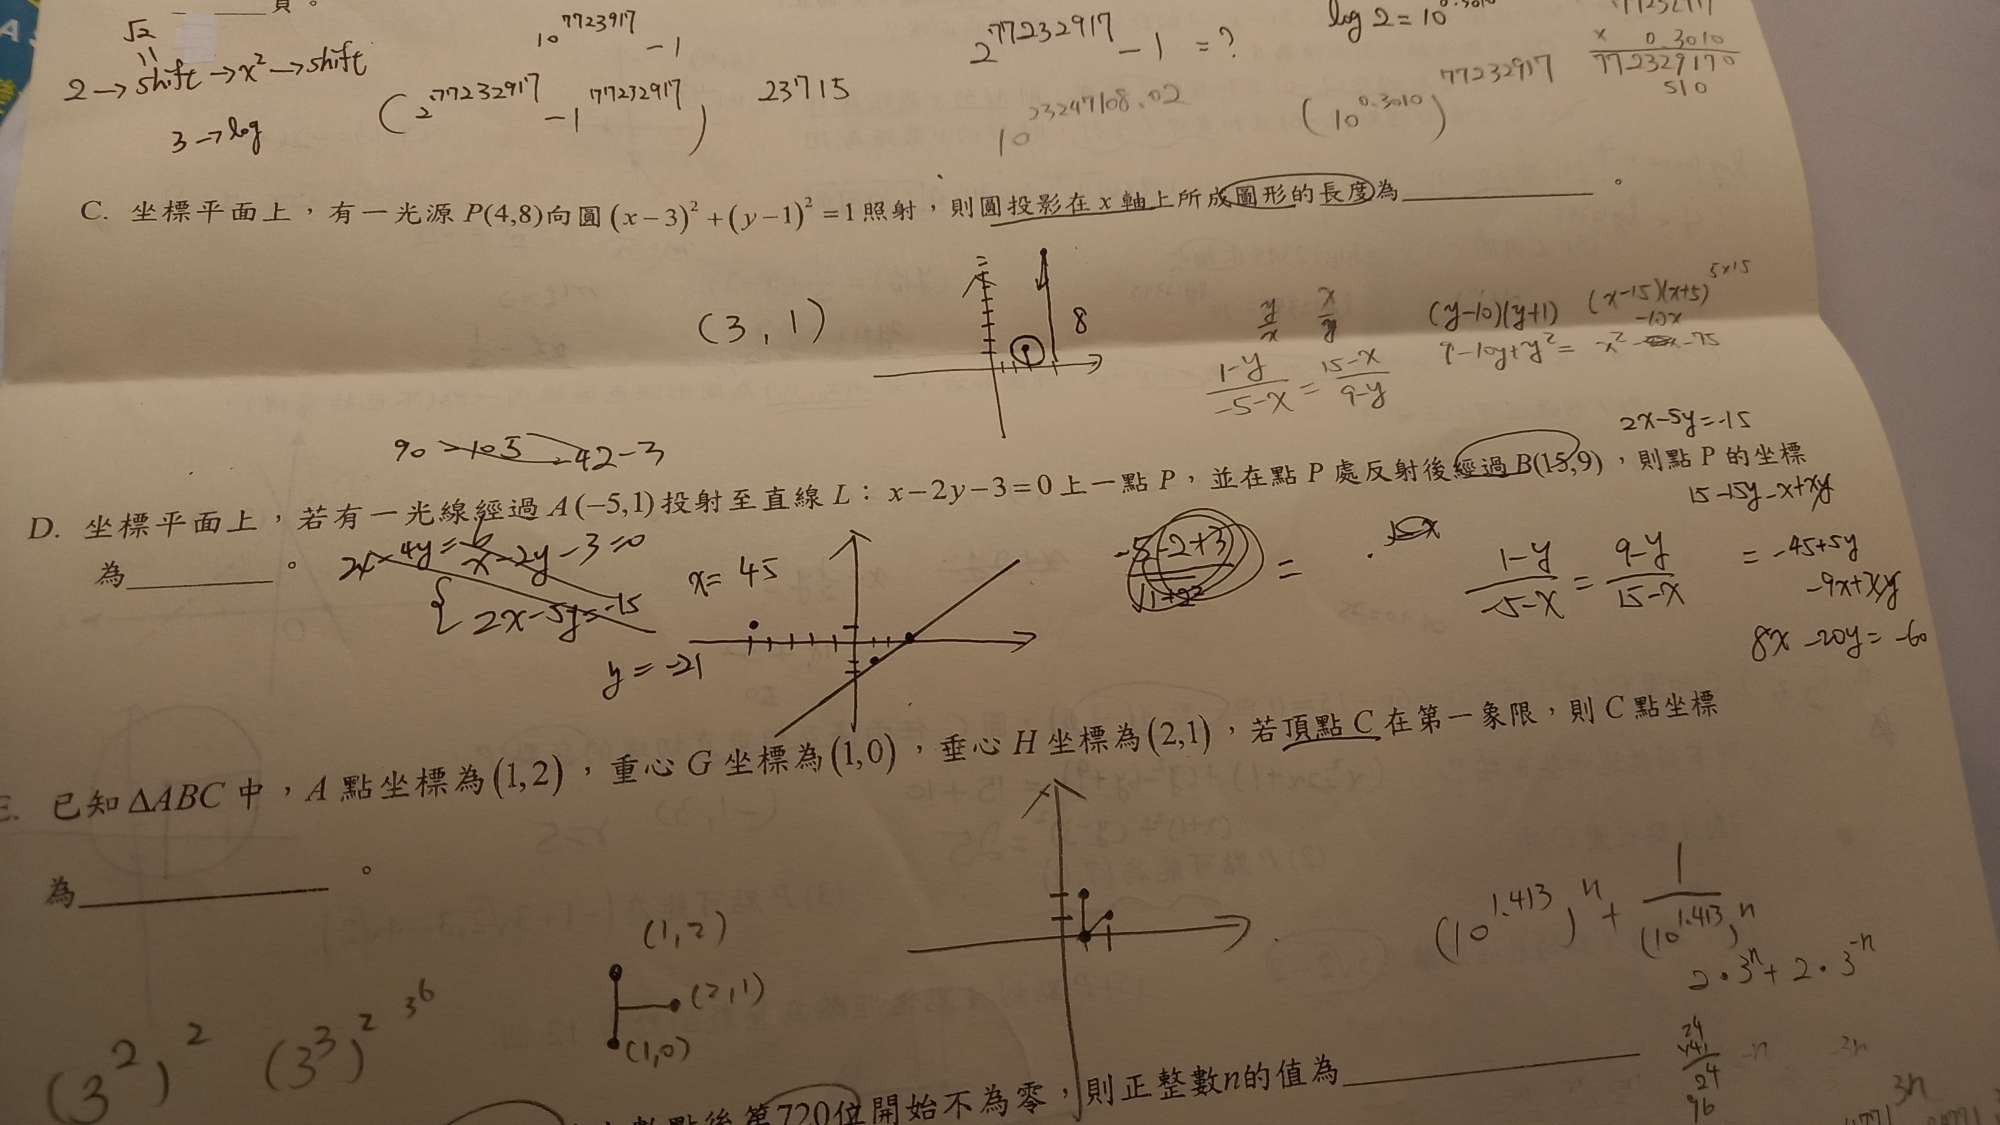 頁。
√2
=
2→shift→x²→shift
3→log
10^7723917 -1
(2^77232917 -1^77232917) 23715
2^77232917 -1 =?
10^23247108.02
log 2 = 10^0.3010
(10^0.3010)^77232917
77232917
x 0.3010
772329170
510
C. 坐標平面上,有一光源P(4,8)向圓(x-3)²+(y-1)²=1照射,則圓投影在x軸上所成圖形的長度為________。
(3,1)
8
y/x x/y
(1-y)/(-5-x) = (15-x)/(9-y)
(y-10)(y+1) (x-15)(x+5) 5x15
-10x
9-10y+y² = x² -75
2x-5y=-15
90 -105 -42-3
D. 坐標平面上,若有一光線經過A(-5,1)投射至直線L:x-2y-3=0上一點P,並在點P處反射後經過B(15,9),則點P的坐標
為________。
2x-4y=6
{ x-2y-3=0
2x-5y=-15
x=45
y=-21
(-5-2+3)/√1+2² =
15-x
(1-y)/(-5-x) = (9-y)/(15-x)
15-15y-x+xy
=-45+5y
-9x+xy
8x-20y=-60
E. 已知ΔABC中,A點坐標為(1,2),重心G坐標為(1,0),垂心H坐標為(2,1),若頂點C在第一象限,則C點坐標
為________。
(1,2)
(2,1)
(1,0)
(3²)² (3³)² 3⁶
(10^1.413)^n + 1/(10^1.413)^n
2·3^n+2·3^-n
24
x41
24
96
3n
數點後第720位開始不為零,則正整數n的值為________